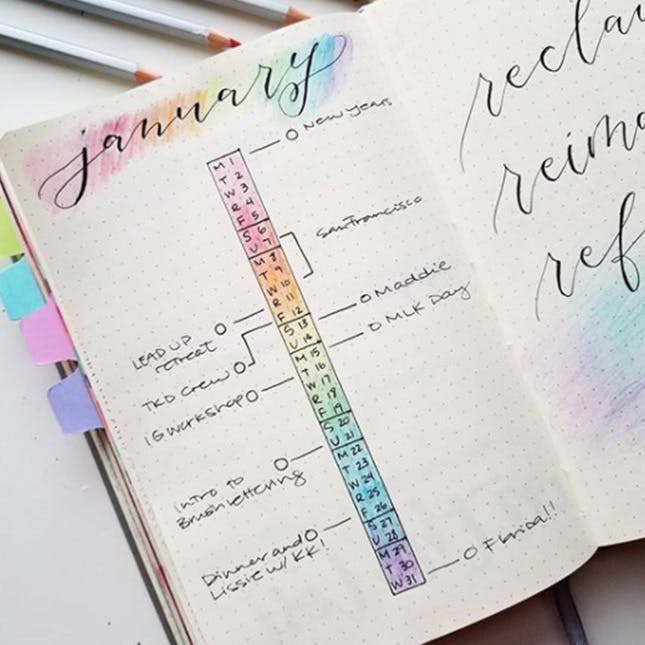 january
New Years
M 1
T 2
W 3
R 4
F 5
S 6
U 7
M 8
T 9
W 10
R 11
F 12
S 13
U 14
M 15
T 16
W 17
R 18
F 19
S 20
U 21
M 22
T 23
W 24
R 25
F 26
S 27
U 28
M 29
T 30
W 31
San Francisco
Maddie
MLK Day
LEAD UP
retreat
TKD Crew
IG Workshop
Intro to
Brushlettering
Dinner and
Lissie w/ KK!
Florida!!
recla
reima
ref